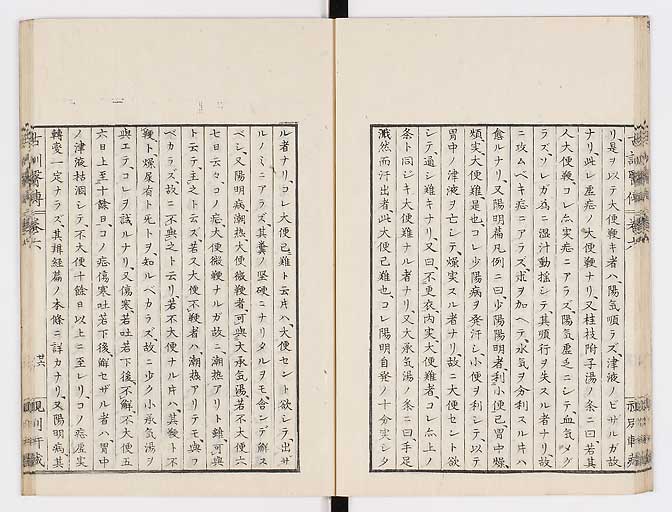 リ是ヲ以テ大便鞕キ者ハ陽気順ラズ津液ノビザルガ故
ナリ此レ虚症ノ大便鞕ナリ又桂枝附子湯ノ条ニ曰若其
人大便鞕コレ亦実症ニアラズ陽気虚乏ニシテ血気メグ
ラズソレガ為ニ湿汁動揺シテ其順行ヲ失スル者ナリ故
ニ攻ムベキ症ニアラズ朮ヲ加ヘテ水気ヲ分利スル片ハ
愈ルナリ又陽明篇凡例ニ曰少陽陽明者利小便已胃中燥
煩実大便難是也コレ少陽病ヲ発汗シ小便ヲ利シテ以テ
胃中ノ津液ヲ亡シテ燥実スル者ナリ故ニ大便セント欲
シテ通シ難キナリ又曰不更衣内実大便難者コレ亦上ノ
条ト同ジキ大便難ナル者ナリ又大承気湯ノ条ニ曰手足
濈然而汗出者此大便已難也コレ陽明自発ノ十分実シタ
ル者ナリコレ大便已難ト云片ハ大便セント欲シテ出ザ
ルノミニアラズ其糞ノ堅硬ニナリタルヲモ含ンデ解ス
ベシ又陽明病潮熱大便微鞕者可與大承気湯若不大便六
七日云々コノ症大便微鞕ナルガ故ニ潮熱アリト雖可與
ト云テ主之ト云ズ若又大便不鞕者ハ潮熱アリテモ與フ
ベカラズ故ニ不與之ト云リ若不大便ナル片ハ其鞕ト不
鞕ト燥屎有ト旡トヲ知ルベカラズ故ニ少ク小承気湯ヲ
與エテコレヲ試ルナリ又傷寒若吐若下後不解不大便五
六日上至十余日コノ症傷寒吐若下後解セザル者ハ胃中
ノ津液枯涸シテ不大便十余日以上ニ至レリコノ症虚実
轉変一定ナラズ其辨経篇ノ本條ニ詳ナリ又陽明病其
古訓醫傳 巻六
廿六